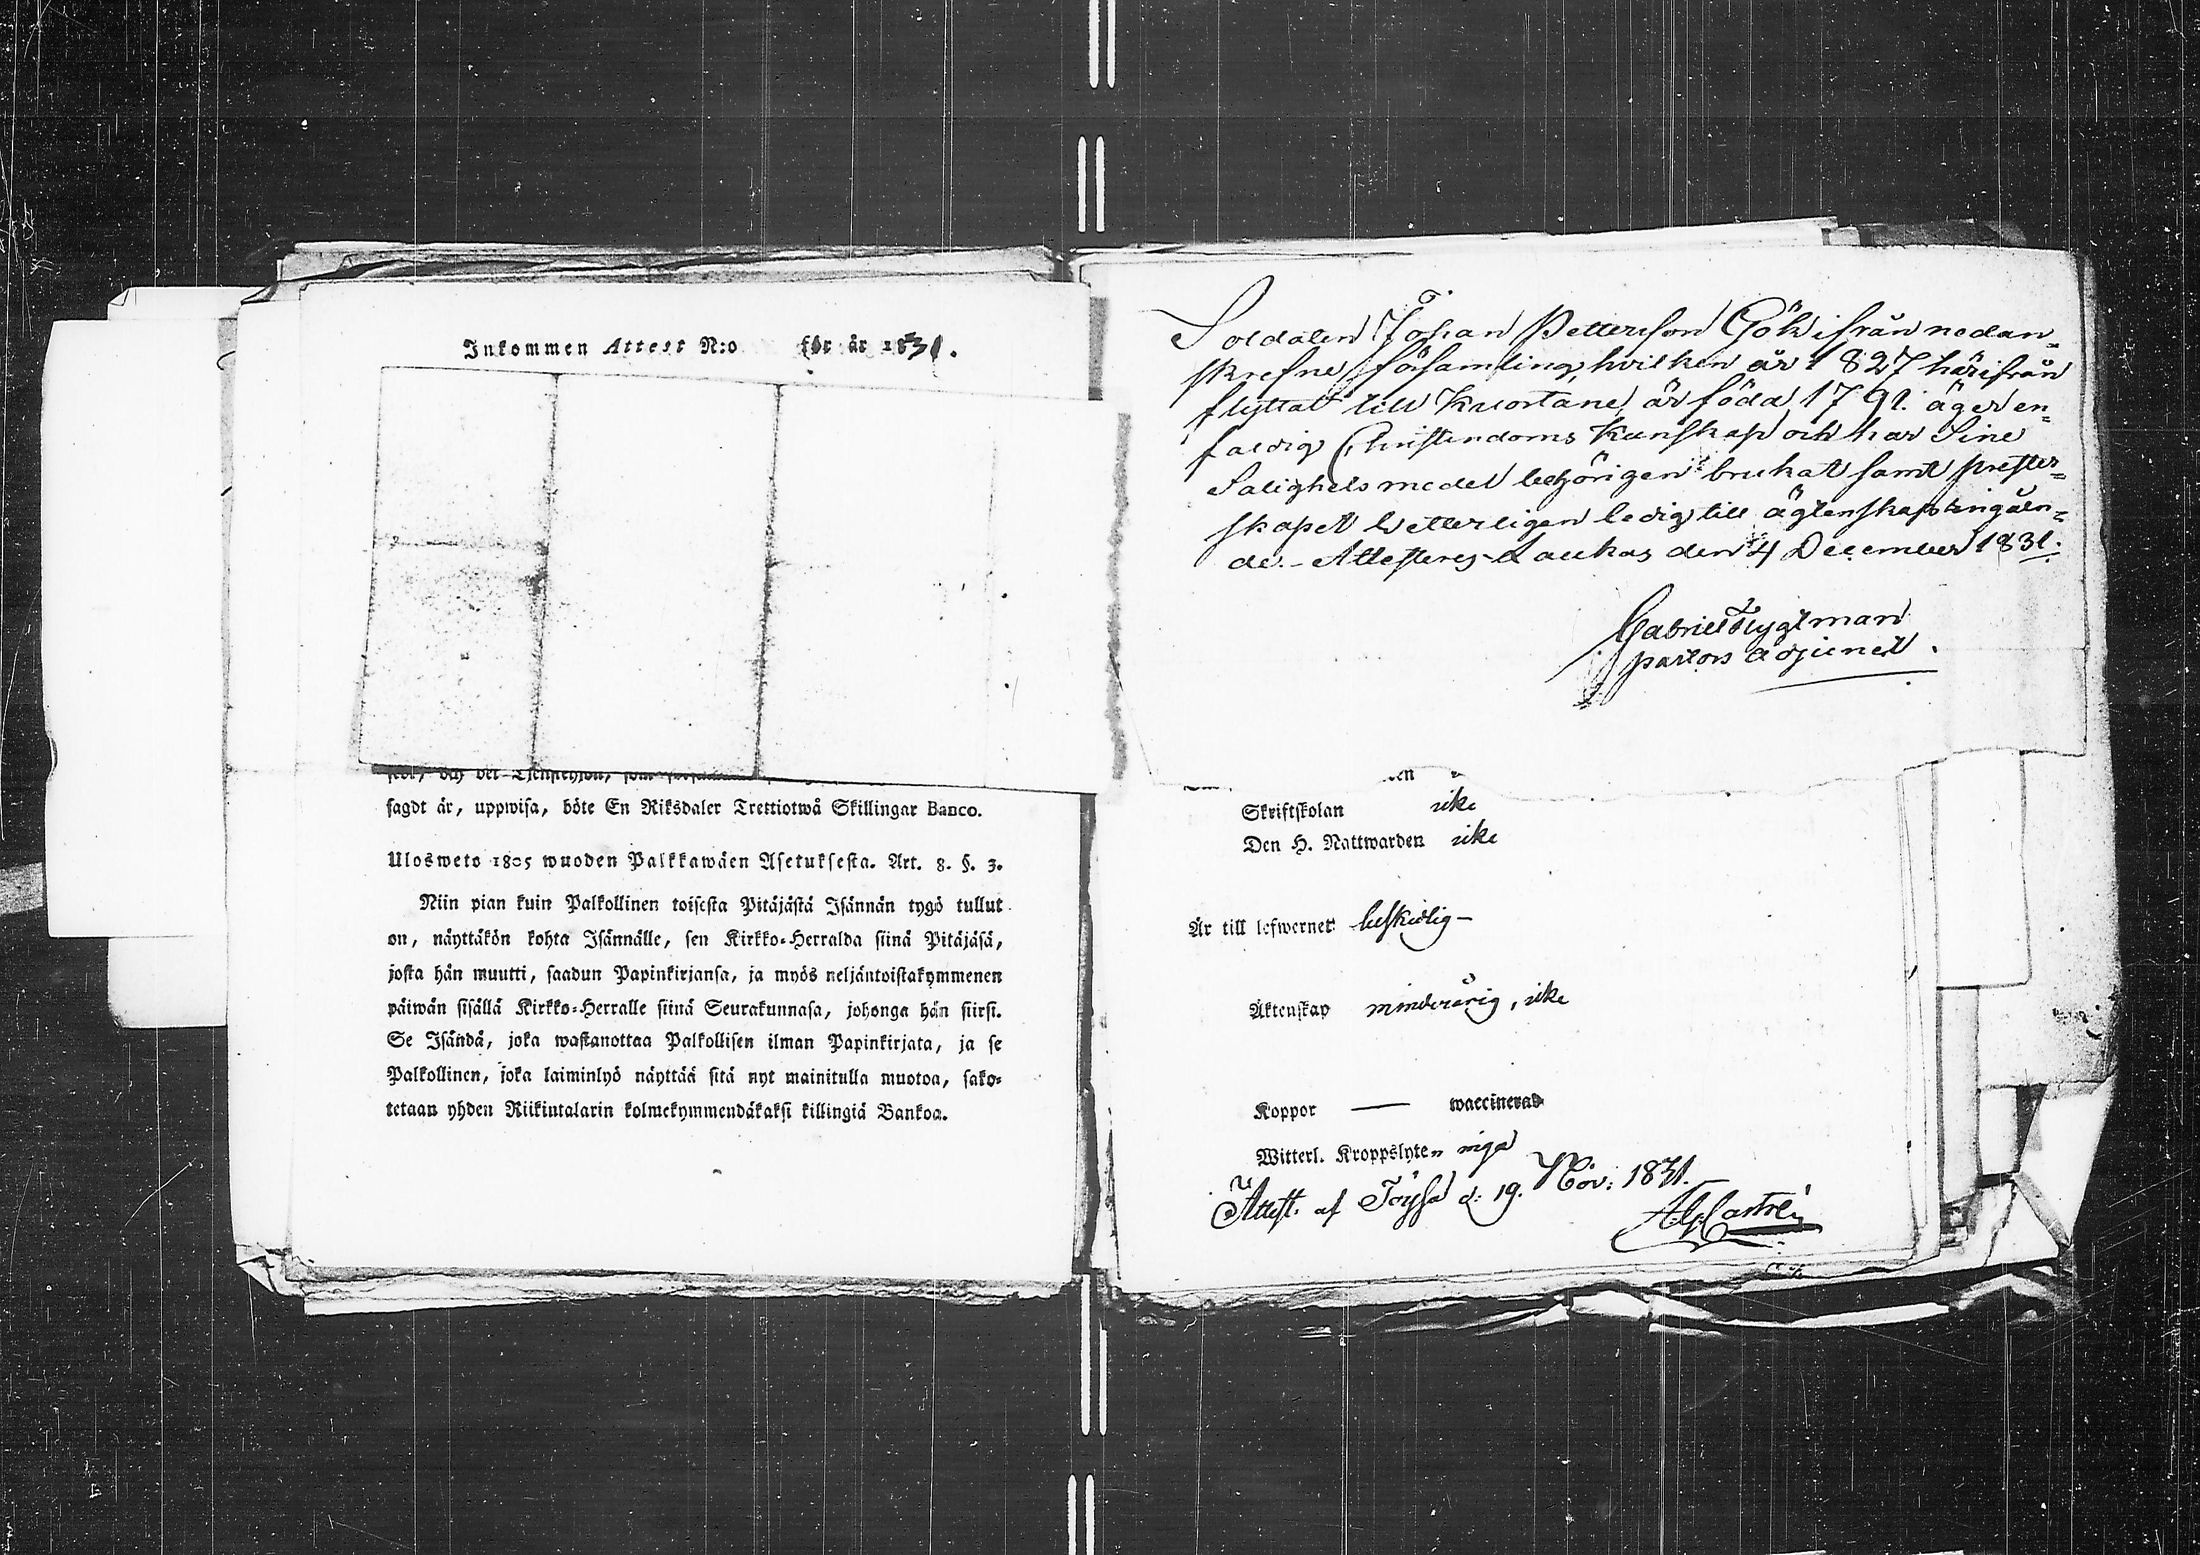 Inkommen Attest N:o för år 1831.
sagdt är, uppwisa, böte En Riksdaler Trettiotwå Skillingar Banco.
Uloswets 1805 wuoden Palkkawäen Asetuksesta. Art. 8. §. 3.
Niin pian kuin Palkollinen toisesta Pitäjästä Isännän tygö tullut
on, näyttäkön kohta Isännälle, sen Kirkko-Herralda siinä Pitäjäsä,
josta hän muutti, saadun Papinkirjansa, ja myös neljäntoistakymmenen
päiwän sisällä Kirkko-Herralle siinä Seurakunnasa, johonga hän siirsi.
Se Isändä, joka wastanottaa Palkollisen ilman Papinkirjata, ja se
Palkollinen, joka laiminlyö näyttää sitä nyt mainitulla muotoa, sako-
tetaan yhden Riikintalarin kolmekymmendäkaksi killingiä Bankoa.
Soldaten Johan Petterson Gök ifrån nedan=
skrefne församling, hvilken år 1827 härifrån
flyttat till Kuortane, är föda 1791. äger en=
faldig Christendoms Kunskap och har Sine
Salighets medel behörigen brukat samt prester=
skapet Wetterligen ledig till ägtenskaps ingåen=
de. - Attesteras Laukas den 4 December 1831.
Gabriel Flygtman
pastors adjunct.
Skriftskolan icke
Den H. Nattwarden icke
Är till lefwernet beskedlig –
Äktenskap minderårig, icke
Koppor — waccinerad
Witterl. Kroppslyten inga
Attest. af Töysä d: 19. Nov: 1831.
A.G. Castrén